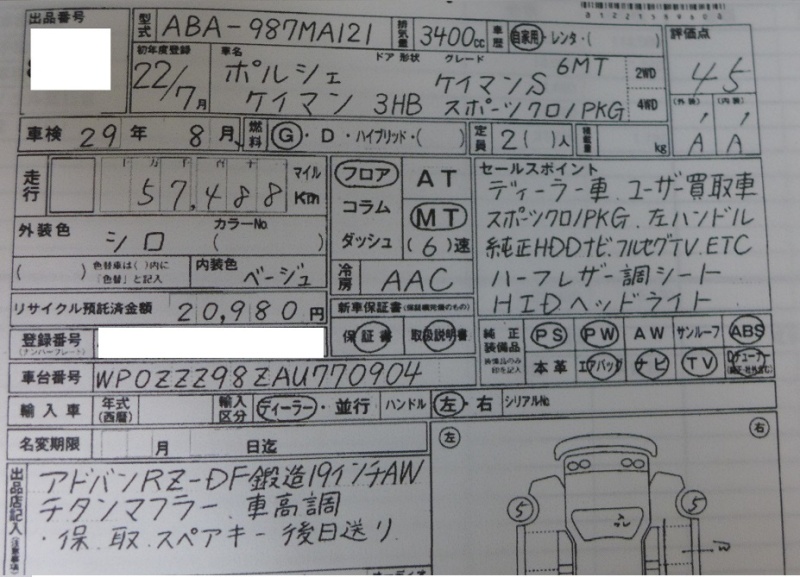 812215896o8
出品番号
型式 ABA-987MA121 排気量 3400cc 車歴 自家用・レンタ・( )
初年度登録 22/7月
車名 ドア 形状 グレード
ポルシェ ケイマンS 6MT 2WD
ケイマン 3HB スポーツクロノPKG 4WD
評価点 4 5
(外装) (内装)
A A
車検 29年 8月 燃料 G・D・ハイブリッド・( ) 定員 2( )人 積載量 kg
走行 十 万 千 百 十 マイル
57,488 Km
フロア AT
コラム MT
ダッシュ (6)速
冷房 AAC
外装色 シロ カラーNo ( )
( ) 色替車は( )内に「色替」と記入 内装色 ベージュ
リサイクル預託済金額 20,980円
新車保証書(保証継承可能のもの)
保証書 取扱説明書
セールスポイント
ディーラー車、ユーザー買取車
スポーツクロノPKG、左ハンドル
純正HDDナビ、フルセグTV、ETC
ハーフレザー調シート
HIDヘッドライト
登録番号(ナンバープレート)
車台番号 WP0ZZZ98ZAU770904
純正装備品 PS PW AW サンルーフ ABS
本革 エアバッグ ナビ TV
輸入車 年式(西暦) 輸入区分 ディーラー・並行 ハンドル 左・右 シリアルNo.
名変期限 月 日迄
出品店記入(注意事項)
アドバンRZ-DF鍛造19インチAW
チタンマフラー、車高調
・保、取、スペアキー後日送り
左 右
5 5